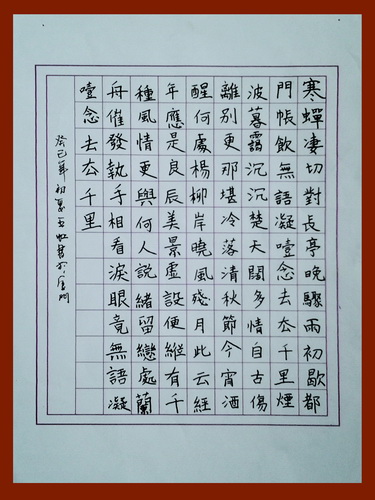 寒蟬凄切對長亭晚驟雨初歇都
門帳飲無語凝噎念去厺千里煙
波暮靄沉沉楚天闊多情自古傷
離別更那堪冷落清秋節今宵酒
醒何處楊柳岸曉風殘月此云經
年應是良辰美景虛設便縱有千
種風情更與何人說緒留戀處蘭
舟催發執手相看淚眼竟無語凝
噎念去厺千里
癸巳年初夏